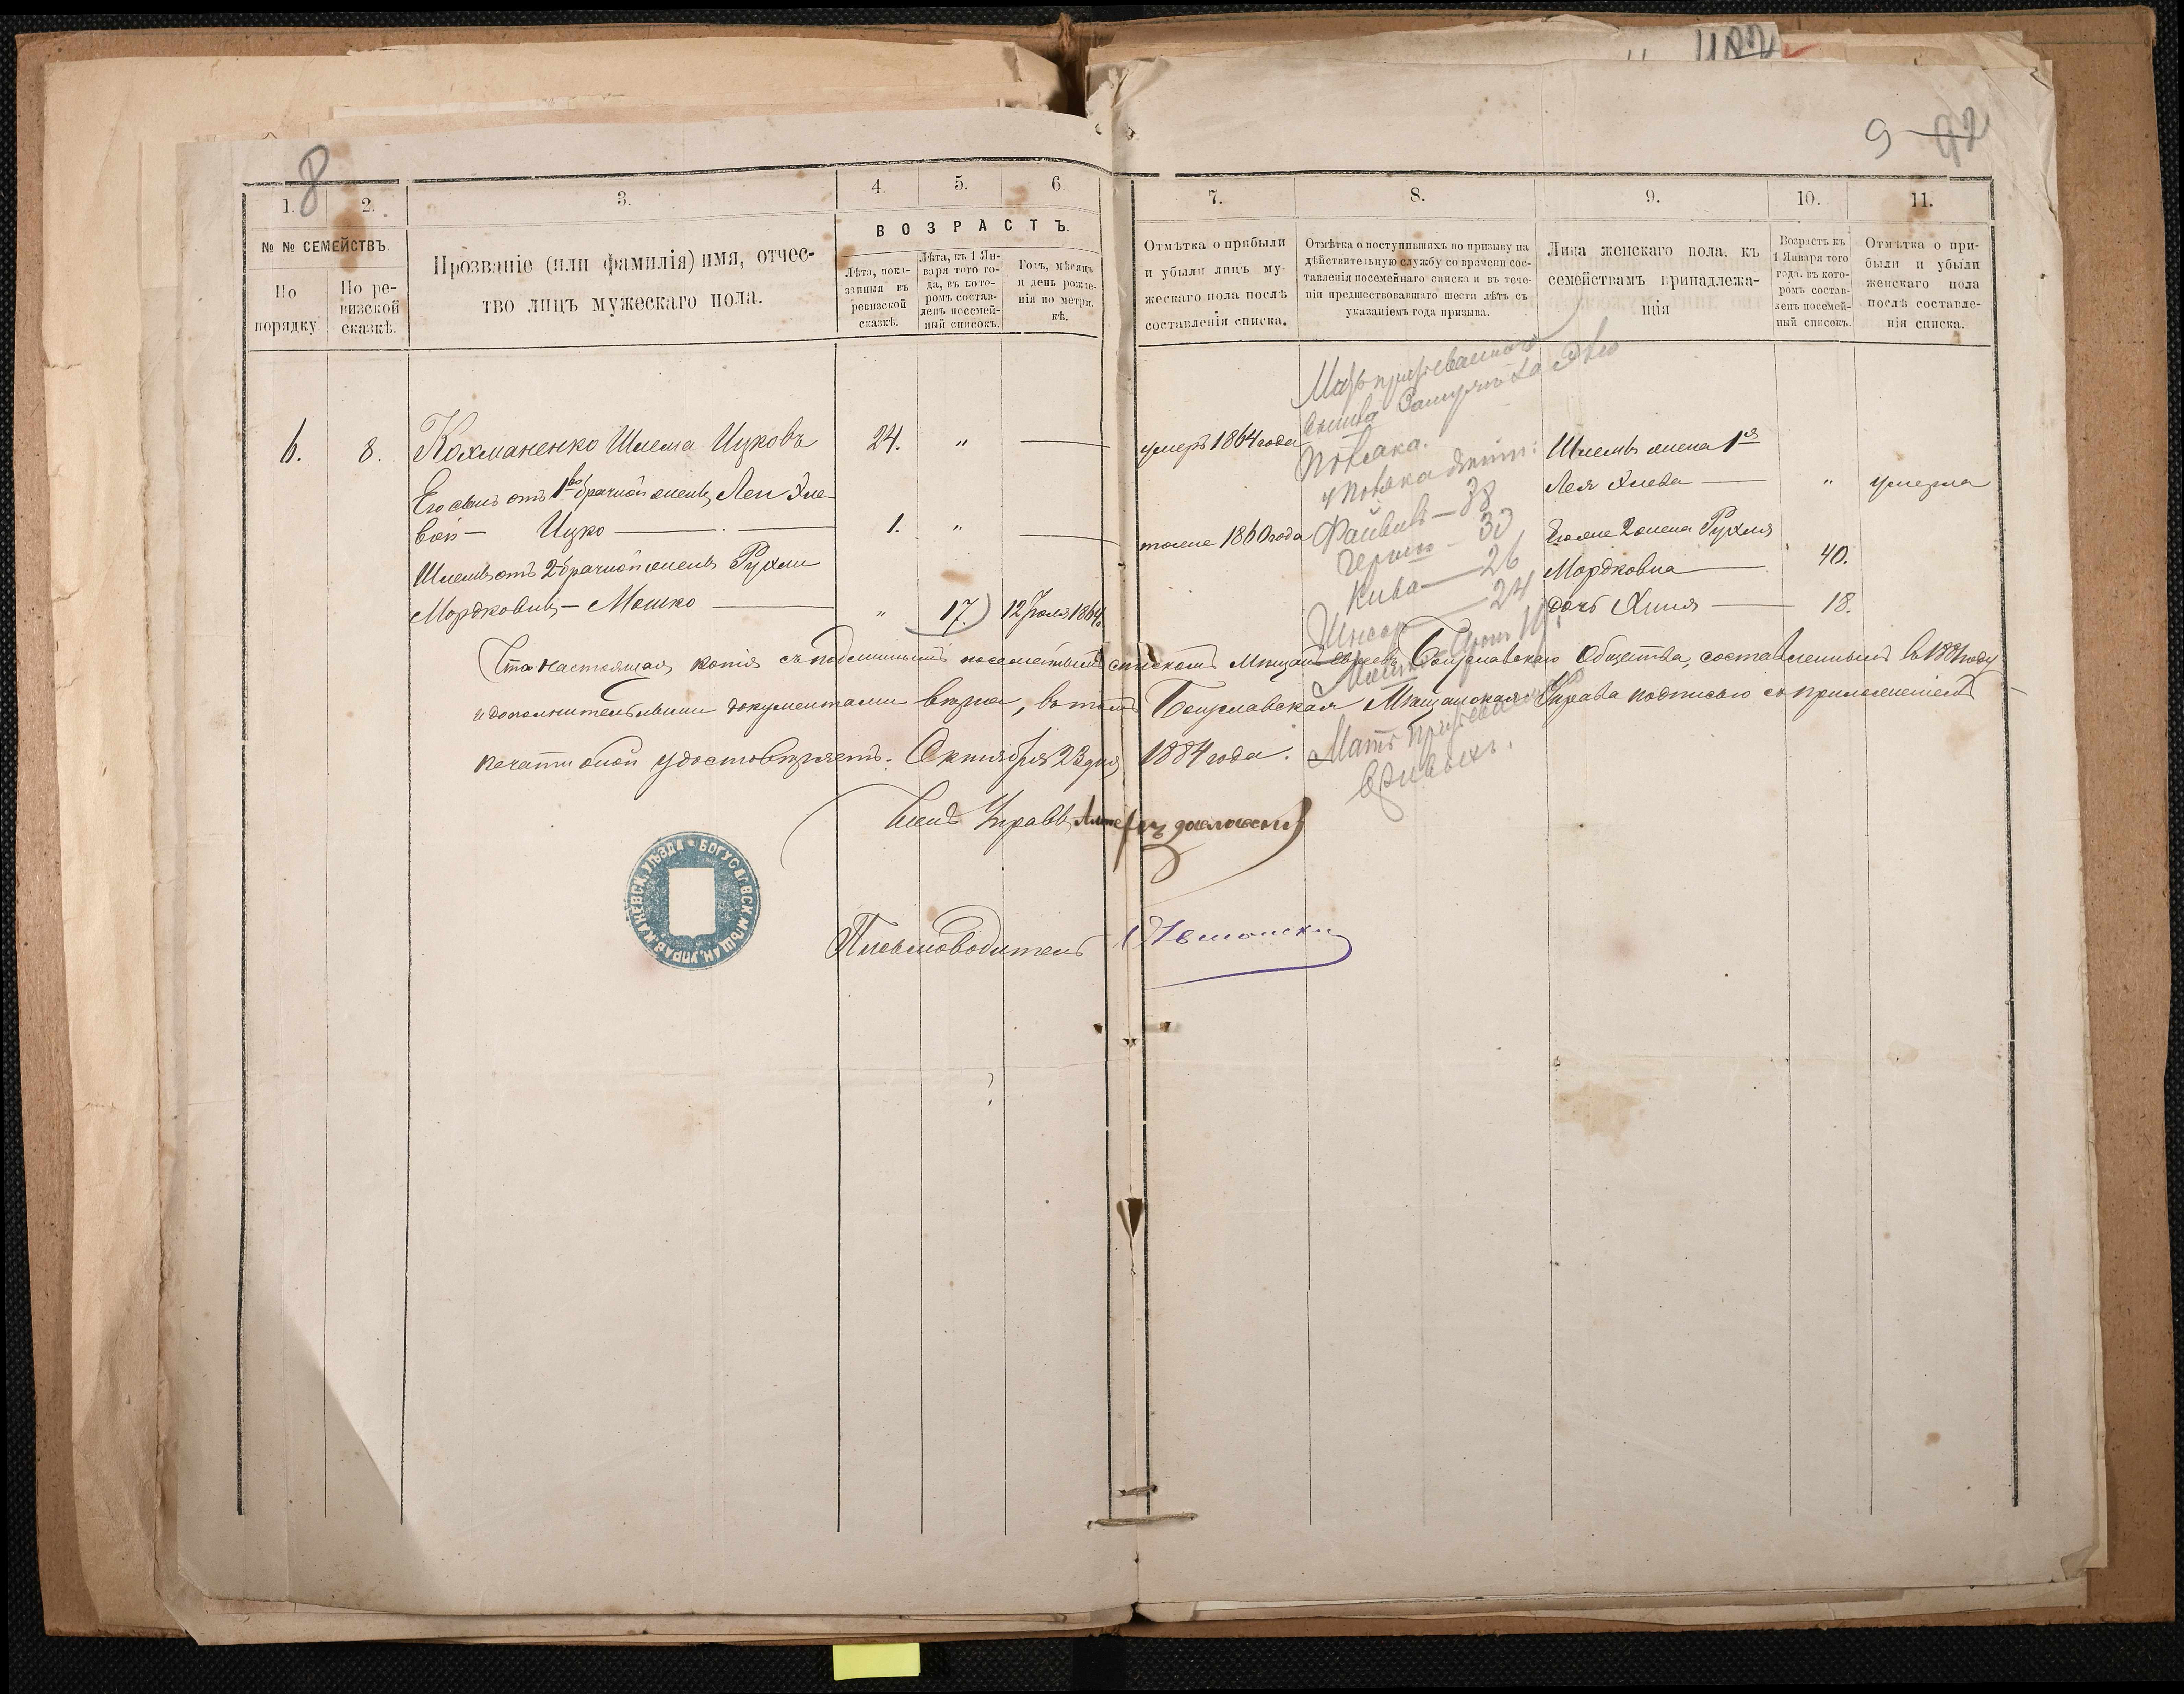 8
9 92
1. 2. 3. 4. 5. 6. 7. 8. 9. 10. 11.
№ № СЕМЕЙСТВЪ.
По порядку
По ревизской сказкѣ.
Прозваніе (или фамилія) имя, отчество лицъ мужескаго пола.
ВОЗРАСТЪ.
Лѣта, показанныя въ ревизской сказкѣ.
Лѣта, къ 1 Января того года, въ которомъ составленъ посемейный списокъ.
Годъ, мѣсяцъ и день рожденія по метрикѣ.
Отмѣтка о прибыли и убыли лицъ мужескаго пола послѣ составленія списка.
Отмѣтка о поступившихъ по призыву на дѣйствительную службу со времени составленія посемейнаго списка и въ теченіи предшествовавшаго шести лѣтъ съ указаніемъ года призыва.
Лица женскаго пола, къ семействамъ принадлежащія
Возрастъ къ 1 Января того года, въ которомъ составленъ посемейный списокъ.
Отмѣтка о прибыли и убыли женскаго пола послѣ составленія списка.
6. 8. Кохманенко Шлема Ицковъ 24. „ — умеръ 1864 года Шлемы жена 1я
Его сынъ отъ 1во брачной жены Леи Хле- Лея Хлева — „ умерла
вой — Ицко — 1. „ — тоже 1860 года Его же 2 жена Рухля
Шлемы отъ 2 брачной жены Рухли Мордковна — 40.
Мордковны — Мошко — „ 17. 12 Іюля 1864. дочь Хиня — 18.
Что настоящая копія съ подлиннымъ посемейнымъ спискомъ Мѣщанъ евреевъ Богуславскаго Общества, составленнымъ въ 1881 году
и дополнительными документами вѣрна, въ томъ Богуславская Мѣщанская Управа подписью съ приложеніемъ
печати оной удостовѣряетъ. Октября 23 дня 1884 года.
Членъ Управы
Письмоводитель
БОГУСЛАВСК. МѢЩАН. УПРАВ. КАНЕВСК. УѢЗДА
Мать призываемаго
Файвишъ — 38
Гершко — 30
Кива — 26
24
Мать